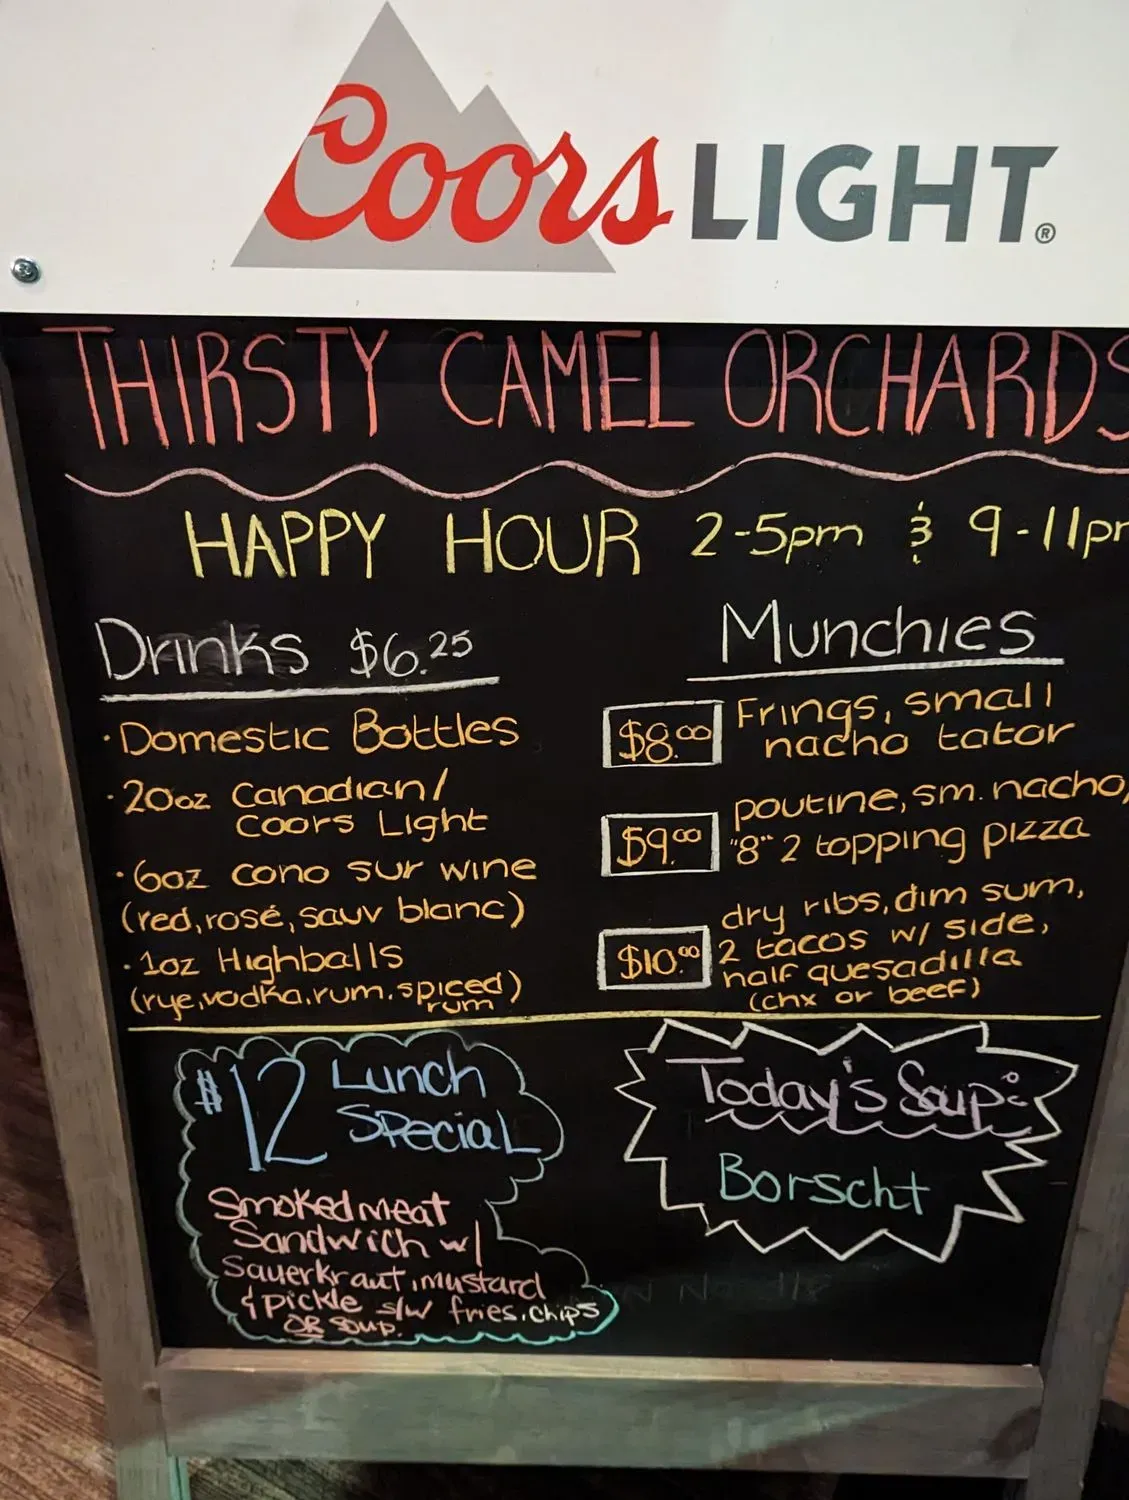 Coors LIGHT®
THIRSTY CAMEL ORCHARDS
HAPPY HOUR 2-5pm & 9-11pm
Drinks $6.25
· Domestic Bottles
· 20oz Canadian/
Coors Light
· 6oz cono sur wine
(red, rosé, sauv blanc)
· 1oz Highballs
(rye, vodka, rum, spiced
rum)
Munchies
$8.00 Frings, small
nacho tator
$9.00 poutine, sm. nacho,
"8" 2 topping pizza
dry ribs, dim sum,
$10.00 2 tacos w/ side,
half quesadilla
(chx or beef)
$12 Lunch
Special
Smoked meat
Sandwich w/
Sauerkraut, mustard
& pickle s/w fries, chips
OR soup.
Today's Soup:
Borscht